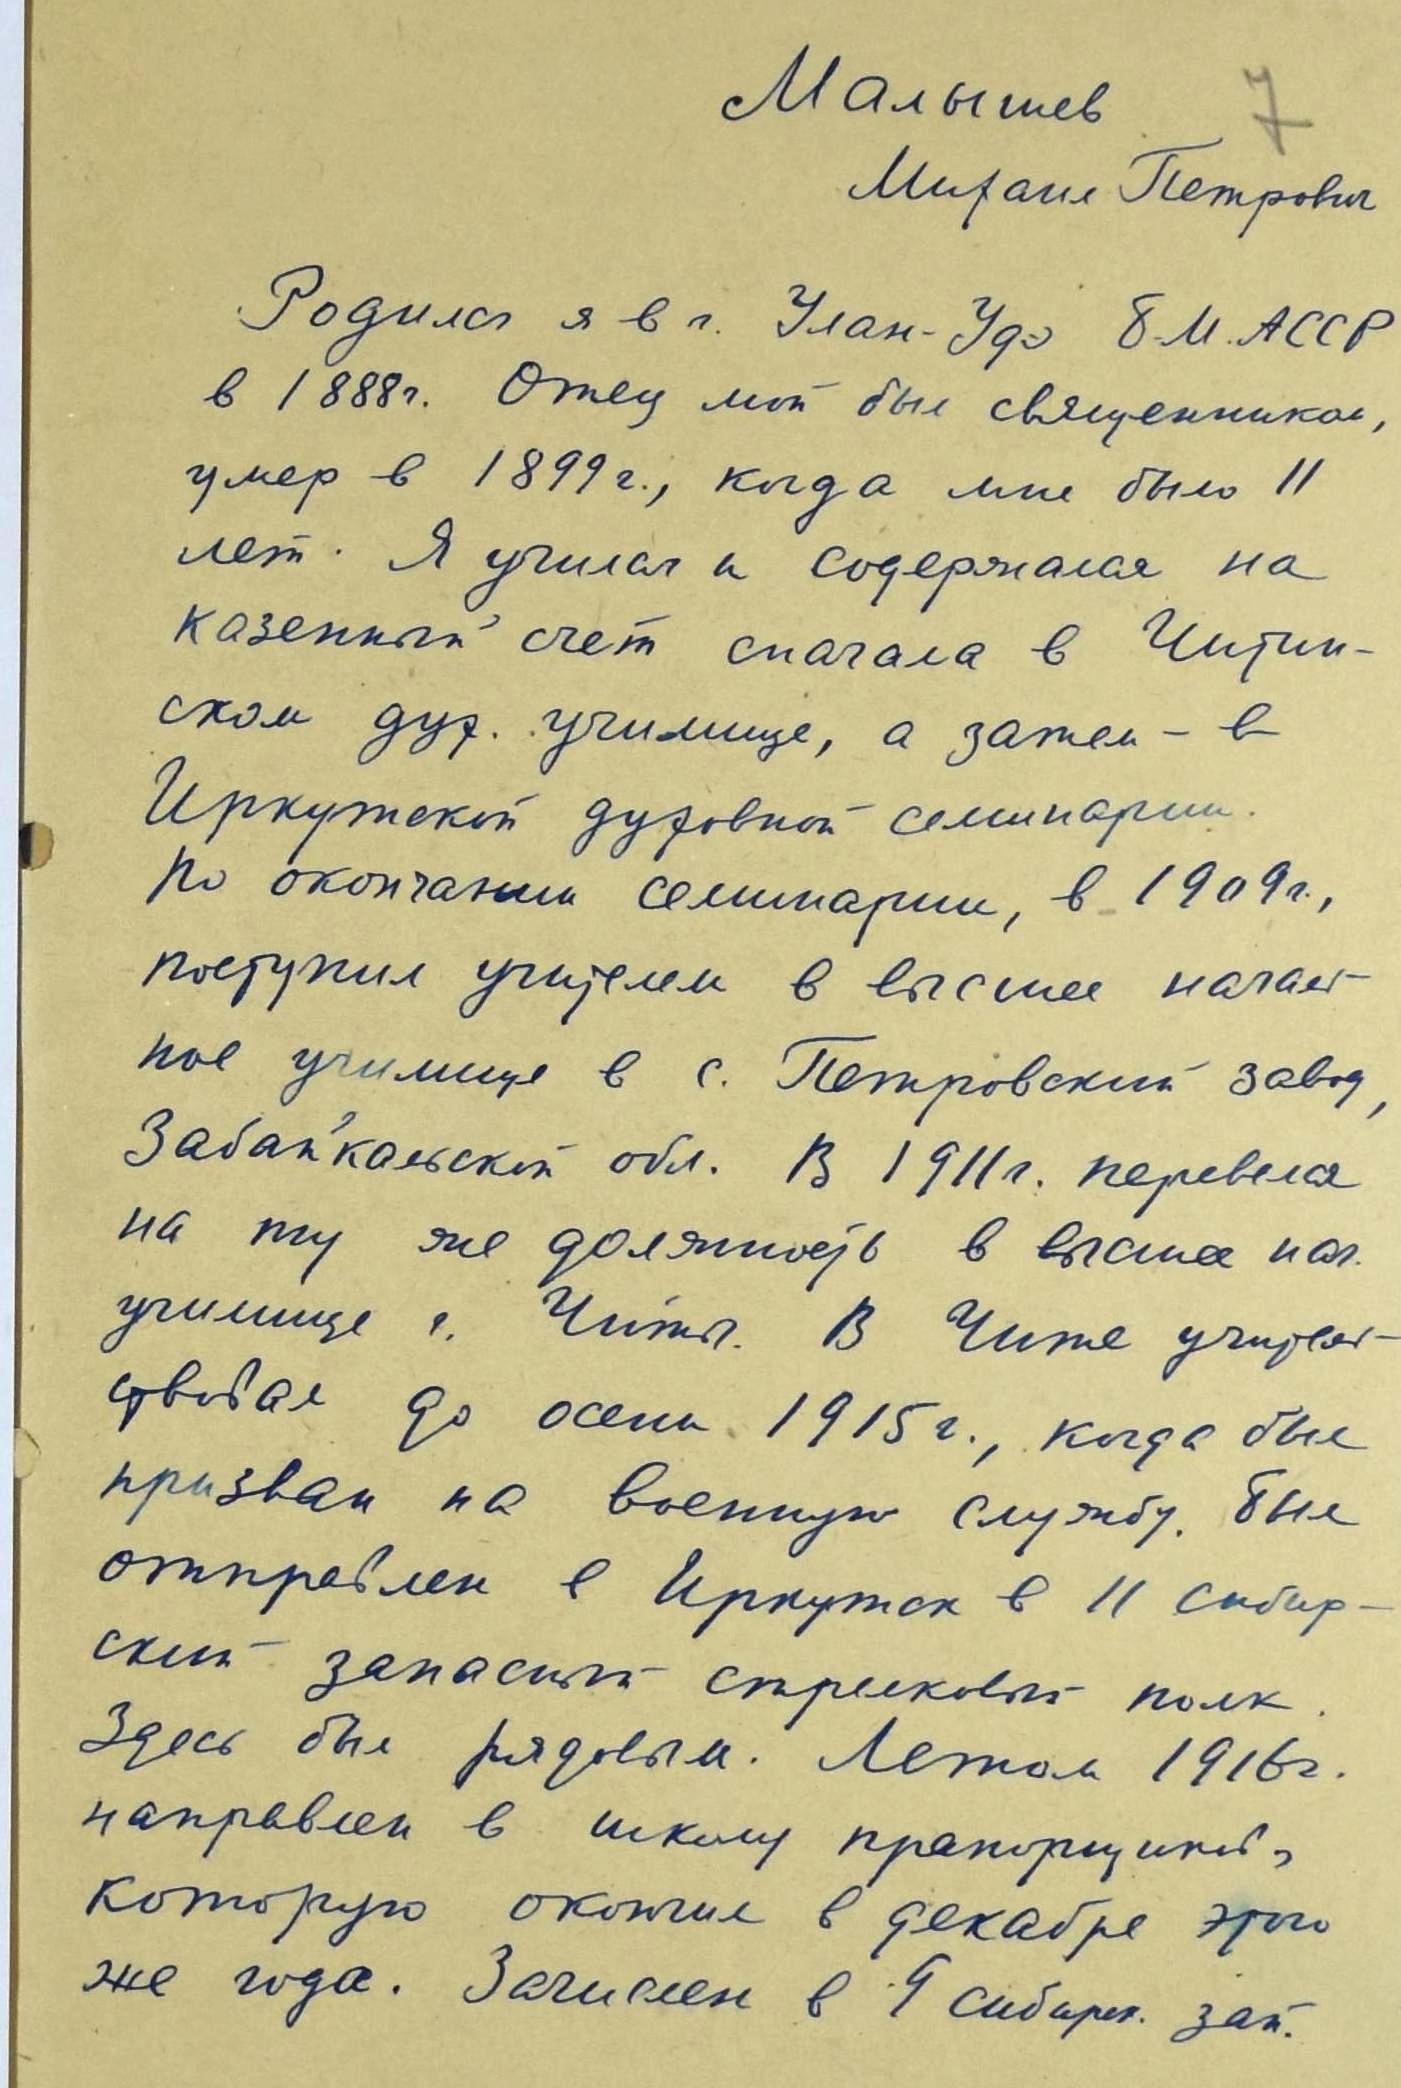 7
Малышев
Михаил Петрович
Родился я в г. Улан-Удэ Б-М. АССР
в 1888г. Отец мой был священником,
умер в 1899г., когда мне было 11
лет. Я учился и содержался на
казенный счет сначала в Читин-
ском дух. училище, а затем - в
Иркутской духовной семинарии.
По окончании семинарии, в 1909г.,
поступил учителем в высшее началь-
ное училище в с. Петровский завод,
Забайкальской обл. В 1911г. перевелся
на ту же должность в высшее нач.
училище г. Читы. В Чите учитель-
ствовал до осени 1915г., когда был
призван на военную службу. Был
отправлен в Иркутск в 11 сибир-
ский запасный стрелковый полк.
Здесь был рядовым. Летом 1916г.
направлен в школу прапорщиков,
которую окончил в декабре этого
же года. Зачислен в 9 сибирск. зап.